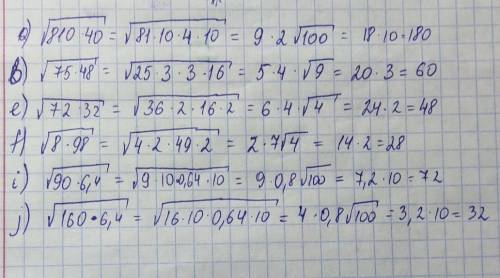 a) √810·40 = √81·10·4·10 = 9·2√100 = 18·10=180
b) √75·48 = √25·3·3·16 = 5·4·√9 = 20·3=60
e) √72·32 = √36·2·16·2 = 6·4·√4 = 24·2=48
f) √8·98 = √4·2·49·2 = 2·7√4 = 14·2=28
i) √90·6,4 = √9·10·0,64·10 = 9·0,8√100 = 7,2·10=72
j) √160·6,4 = √16·10·0,64·10 = 4·0,8√100 = 3,2·10=32